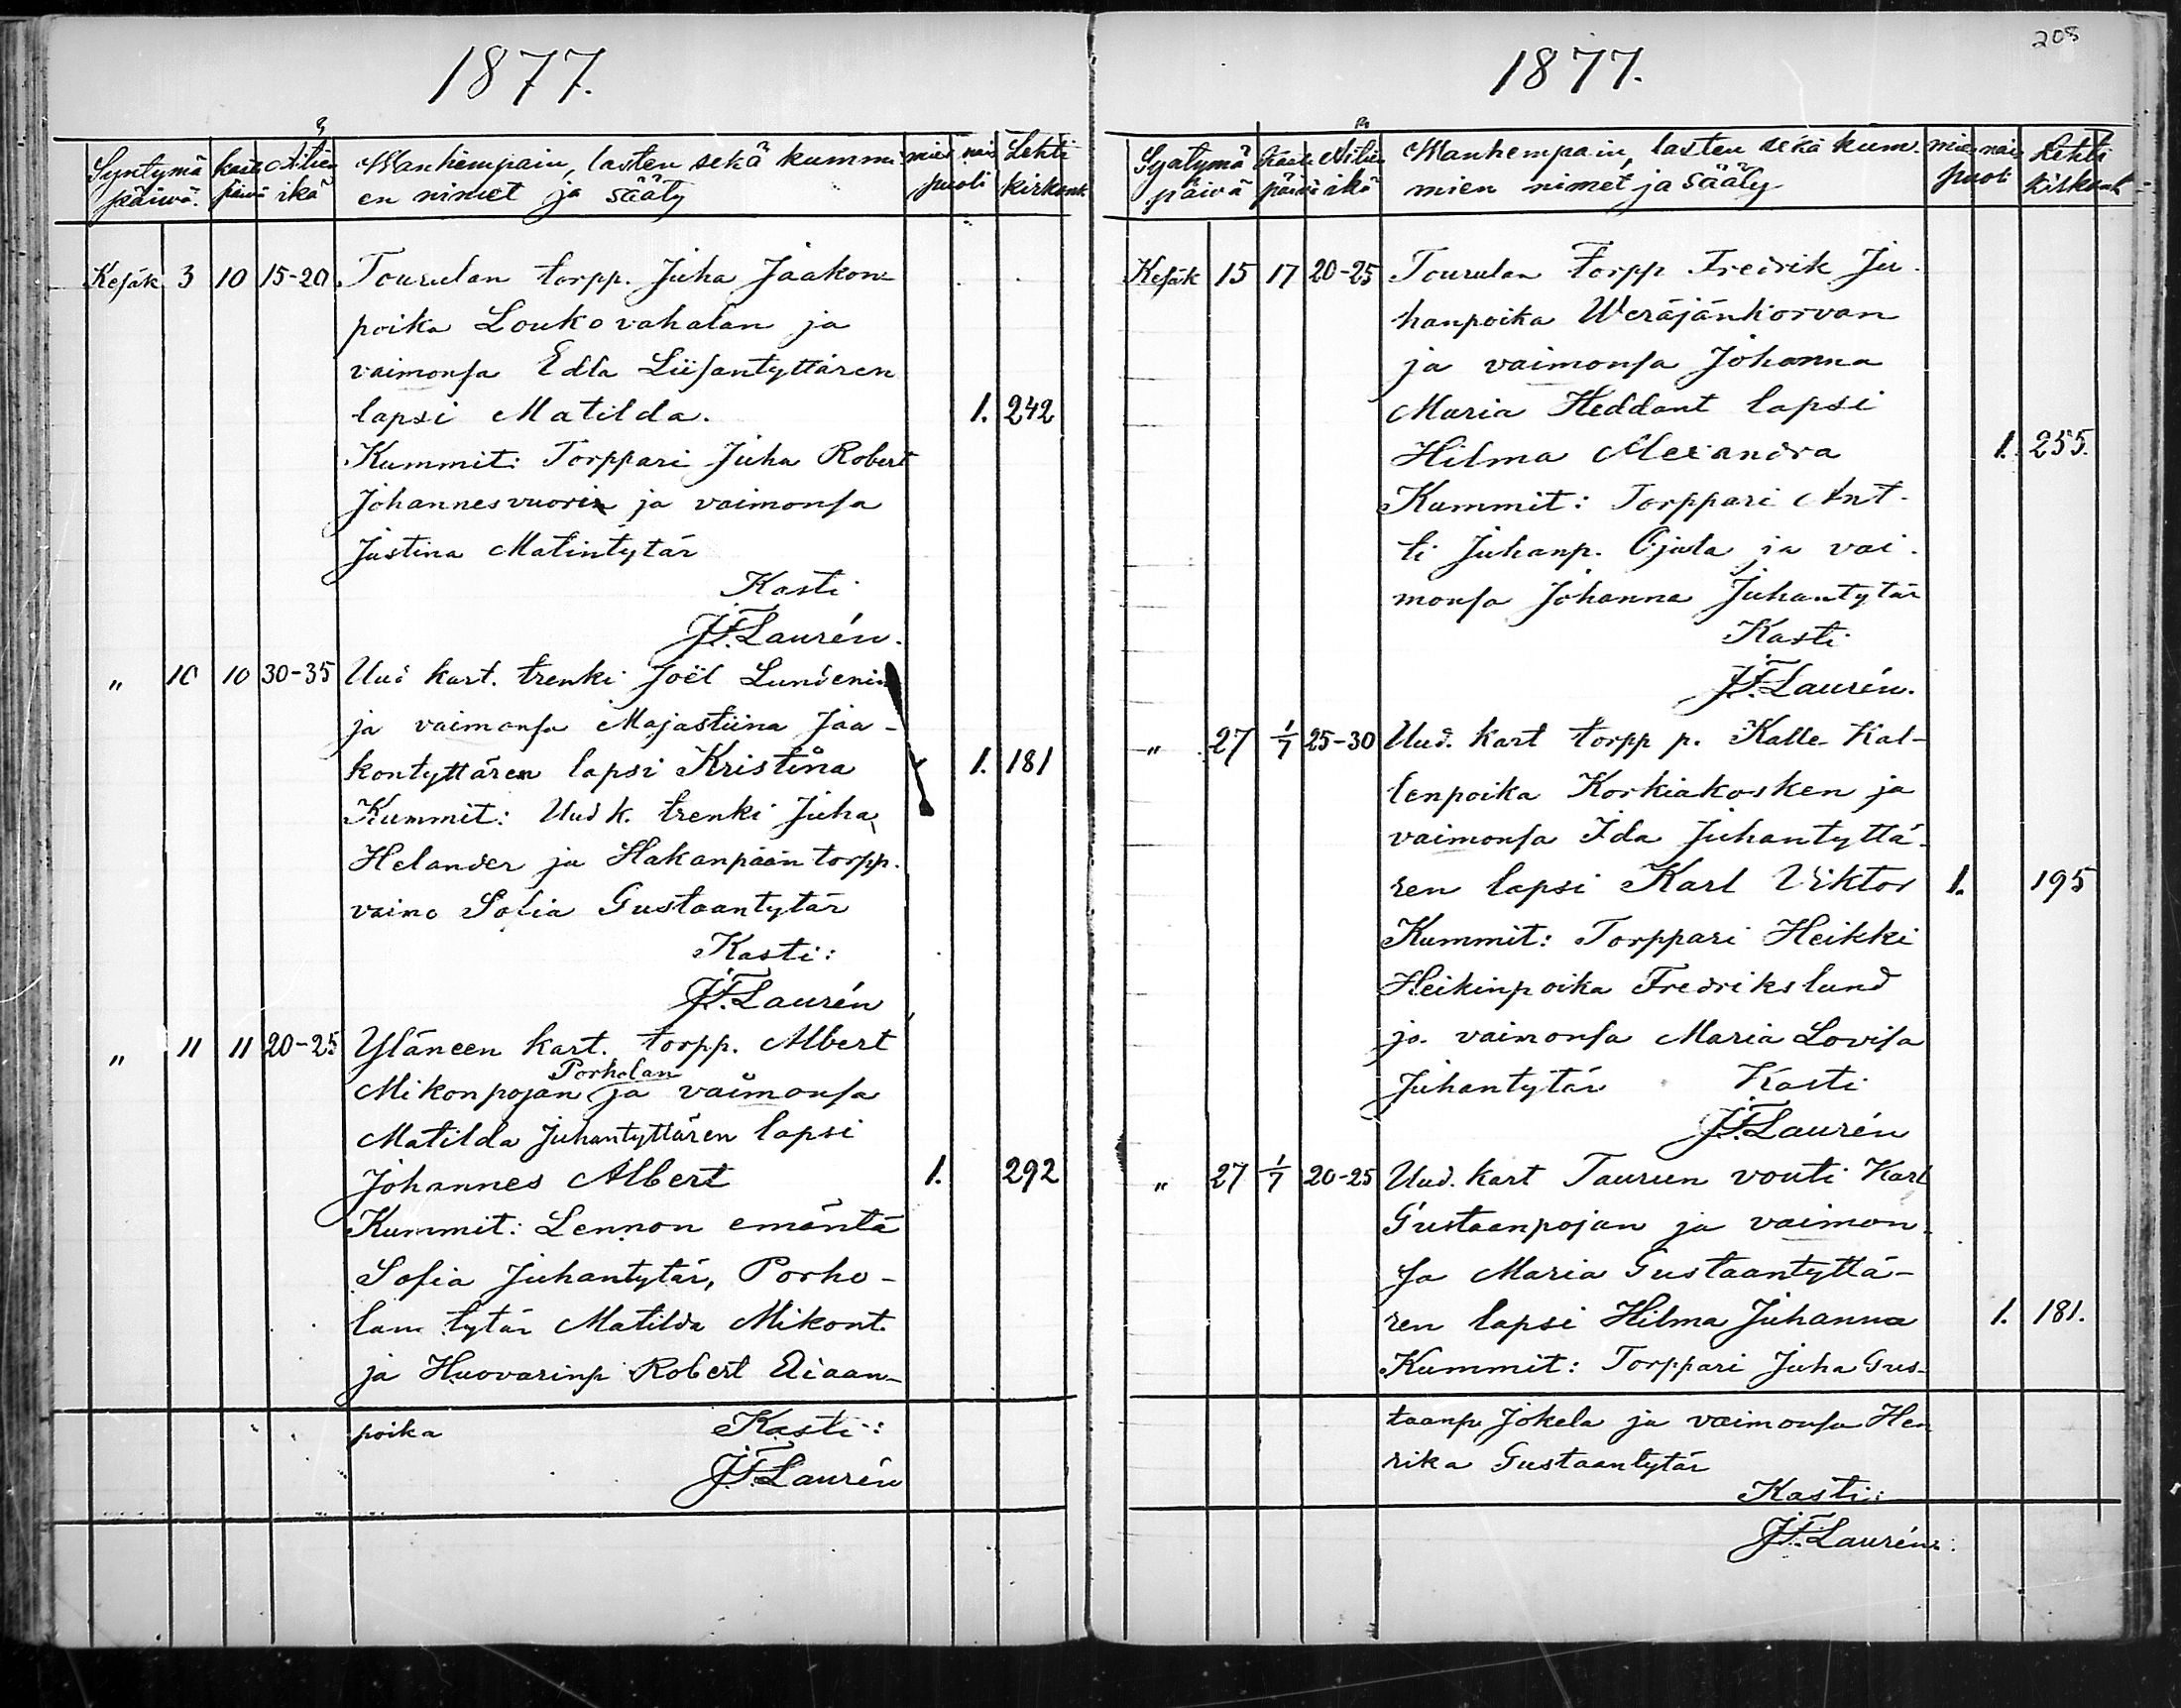 1877.
Syntymä päivä. | kaste päivä | Äitien ikä | Wanhempain, lasten sekä kummien nimet ja sääty | mies puoli | nais | Lehti kirkonk
Kesäk 3 10 15-20 Tourulan torpp. Juha Jaakon
poika Loukovahalan ja
vaimonsa Edla Liisantyttären
lapsi Matilda. 1. 242
Kummit: Torppari Juha Robert
Johannesvuorin ja vaimonsa
Justina Matintytär
Kasti
J.F. Laurén.
" 10 10 30-35 Uud kart. trenki Joël Lundenin
ja vaimonsa Majastiina Jaa-
kontyttären lapsi Kristina 1. 181
Kummit: Uud k. trenki Juha
Helander ja Hakanpään torpp.
vaimo Sofia Gustaantytär
Kasti:
J.F. Laurén
" 11 11 20-25 Yläneen kart. torpp. Albert
Porholan
Mikonpojan ja vaimonsa
Matilda Juhantyttären lapsi
Johannes Albert 1. 292
Kummit: Lennon emäntä
Sofia Juhantytär, Porho-
lan tytär Matilda Mikont.
ja Huovarinp Robert
poika Kasti:
J.F. Laurén
208
1877.
Syntymä päivä | kaste päivä | Äitien ikä | Wanhempain, lasten sekä kum-
mien nimet ja sääty | mies puoli | nais | Lehti kirkonk
Kesäk 15 17 20-25 Tourulan Torpp Fredrik Ju-
hanpoika Weräjänkorvan
ja vaimonsa Johanna
Maria Heddant lapsi
Hilma Alexandra 1. 255.
Kummit: Torppari Ant-
ti Juhanp. Ojala ja vai-
monsa Johanna Juhantytär
Kasti
J.F. Laurén.
" 27 1/7 25-30 Uud. kart torpp p. Kalle Kal-
lenpoika Korkiakosken ja
vaimonsa Ida Juhantyttä-
ren lapsi Karl Viktor 1. 195
Kummit: Torppari Heikki
Heikinpoika Fredrikslund
ja vaimonsa Maria Lovisa
Juhantytär Kasti
J.F. Laurén
" 27 1/7 20-25 Uud. kart Taurun vouti Karl
Gustaanpojan ja vaimon-
sa Maria Gustaantyttä-
ren lapsi Hilma Juhanna 1. 181.
Kummit: Torppari Juha Gus-
taanp Jokela ja vaimonsa Hen
rika Gustaantytär
Kasti:
J.F. Laurén: